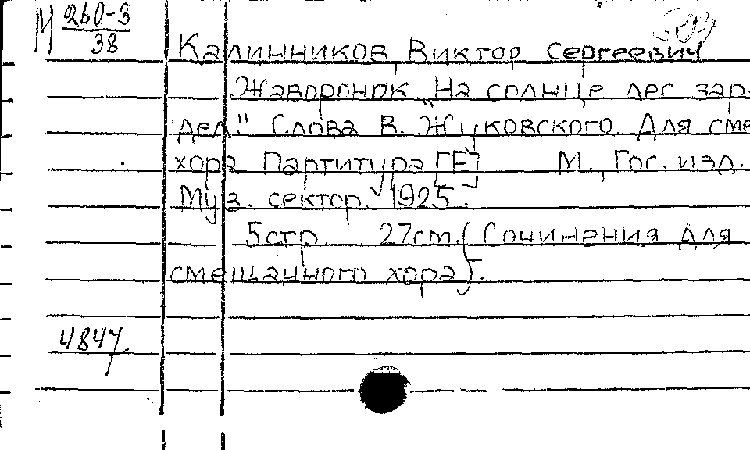 М 260-3
38
Калинников, Виктор Сергеевич
Жаворонок „На солнце лес зар-
дел." Слова В. Жуковского. Для сме
хора Партитура [Е] М., Гос. изд.
Муз. сектор. 1925.
5 стр. 27 см. (Сочинения для
смешанного хора).
4847